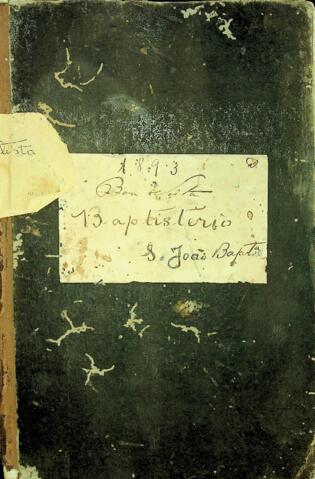 ista
1893
Boa Vista
Baptisterio
S. João Bapta